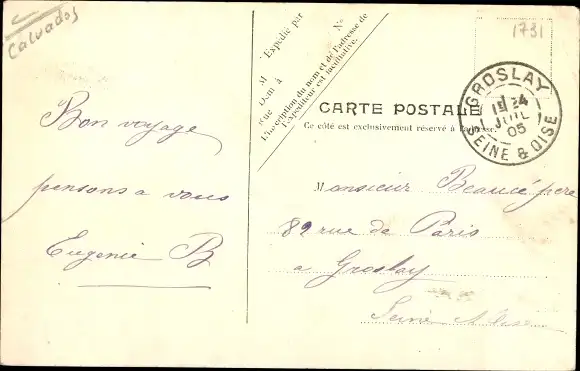 Calvados
1731
Expédié par
M
Demt à
Rue
No
L'inscription du nom et de l'adresse de
l'Expéditeur est facultative.
CARTE POSTALE
Ce côté est exclusivement réservé à l'adresse.
GROSLAY
24
JUIL
05
SEINE & OISE
Bon voyage
pensons a vous
Eugenie B
Monsieur Beaucé père
82 rue de Paris
a Groslay
Seine